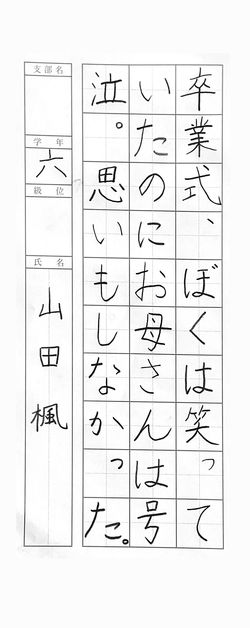 卒業式、ぼくは笑って
いたのにお母さんは号
泣。思いもしなかった。
支部名
学年
六
級位
氏名
山田楓